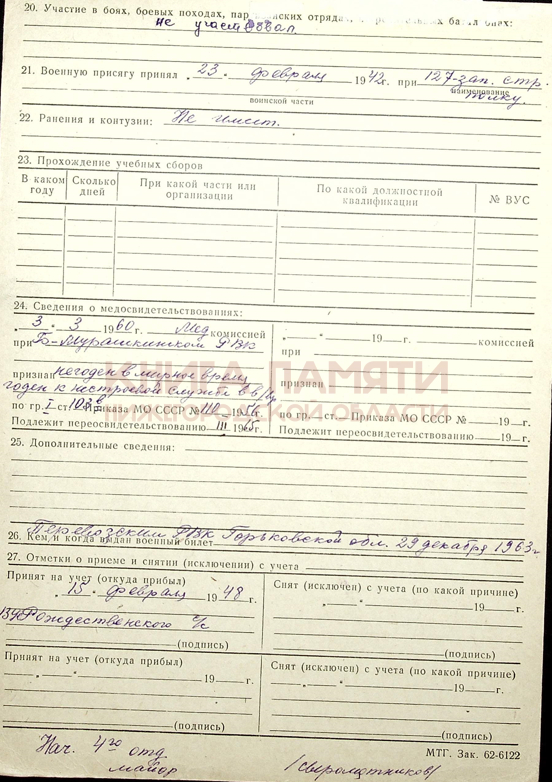 20. Участие в боях, боевых походах, пар
не участвовал.
21. Военную присягу принял „23“ февраля 1942г. при 127-зап. стр.
наименование
полку.
воинской части
22. Ранения и контузии: Не имеет.
23. Прохождение учебных сборов
В каком году
Сколько дней
При какой части или организации
По какой должностной квалификации
№ ВУС
24. Сведения о медосвидетельствованиях:
„3“ 3 1960г. Мед комиссией
при Б-Мурашкинском РВК
признан негоден в мирное время
годен к нестроевой службе в в/вр
по гр. I ст. 103 в Приказа МО СССР № 110 —19
Подлежит переосвидетельствованию III 1965г.
„ “ 19 г. комиссией
при
признан
по гр. ст. Приказа МО СССР № —19—г.
Подлежит переосвидетельствованию —19—г.
КНИГА ПАМЯТИ
25. Дополнительные сведения:
26. Кем и когда выдан военный билет Перевозским РВК Горьковской обл. 29 декабря 1963г.
27. Отметки о приеме и снятии (исключении) с учета
Принят на учет (откуда прибыл)
„15“ февраля 1948г.
Рождественского с/с
(подпись)
Снят (исключен) с учета (по какой причине)
„ “ 19 г.
(подпись)
Принят на учет (откуда прибыл)
„ “ 19 г.
(подпись)
Снят (исключен) с учета (по какой причине)
„ “ 19 г.
(подпись)
МТГ. Зак. 62-6122
Нач. 4го отд.
майор /Сыромятников/